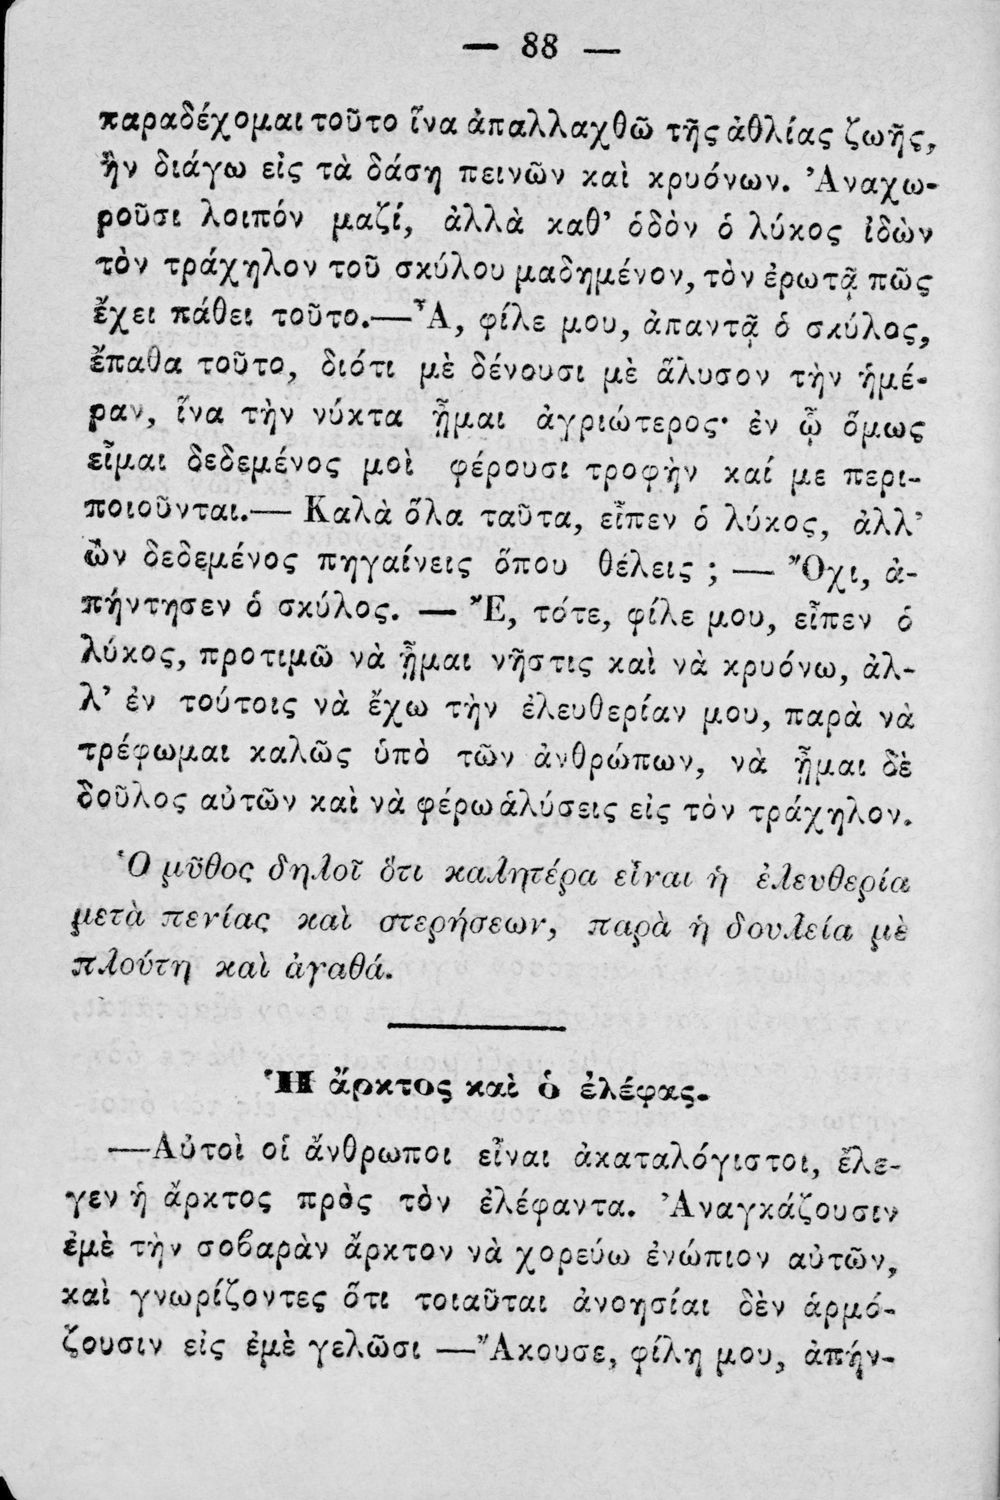 — 88 —
παραδέχομαι τοῦτο ἵνα ἀπαλλαχθῶ τῆς ἀθλίας ζωῆς,
ἣν διάγω εἰς τὰ δάση πεινῶν καὶ κρυόνων. Ἀναχω-
ροῦσι λοιπόν μαζί, ἀλλὰ καθ’ ὁδὸν ὁ λύκος ἰδὼν
τὸν τράχηλον τοῦ σκύλου μαδημένον, τὸν ἐρωτᾷ πῶς
ἔχει πάθει τοῦτο.—Ἆ, φίλε μου, ἀπαντᾷ ὁ σκύλος,
ἔπαθα τοῦτο, διότι μὲ δένουσι μὲ ἅλυσον τὴν ἡμέ-
ραν, ἵνα τὴν νύκτα ᾖμαι ἀγριώτερος· ἐν ᾧ ὅμως
εἶμαι δεδεμένος μοὶ φέρουσι τροφὴν καί με περι-
ποιοῦνται.— Καλὰ ὅλα ταῦτα, εἶπεν ὁ λύκος, ἀλλ’
ὢν δεδεμένος πηγαίνεις ὅπου θέλεις ; — Ὄχι, ἀ-
πήντησεν ὁ σκύλος. — Ἒ, τότε, φίλε μου, εἶπεν ὁ
λύκος, προτιμῶ νὰ ᾖμαι νῆστις καὶ νὰ κρυόνω, ἀλ-
λ’ ἐν τούτοις νὰ ἔχω τὴν ἐλευθερίαν μου, παρὰ νὰ
τρέφωμαι καλῶς ὑπὸ τῶν ἀνθρώπων, νὰ ᾖμαι δὲ
δοῦλος αὐτῶν καὶ νὰ φέρω ἁλύσεις εἰς τὸν τράχηλον.
Ὁ μῦθος δηλοῖ ὅτι καλητέρα εἶναι ἡ ἐλευθερία
μετὰ πενίας καὶ στερήσεων, παρὰ ἡ δουλεία μὲ
πλούτη καὶ ἀγαθά.
Ἡ ἄρκτος καὶ ὁ ἐλέφας.
—Αὐτοὶ οἱ ἄνθρωποι εἶναι ἀκαταλόγιστοι, ἔλε-
γεν ἡ ἄρκτος πρὸς τὸν ἐλέφαντα. Ἀναγκάζουσιν
ἐμὲ τὴν σοβαρὰν ἄρκτον νὰ χορεύω ἐνώπιον αὐτῶν,
καὶ γνωρίζοντες ὅτι τοιαῦται ἀνοησίαι δὲν ἁρμό-
ζουσιν εἰς ἐμὲ γελῶσι —Ἄκουσε, φίλη μου, ἀπήν-